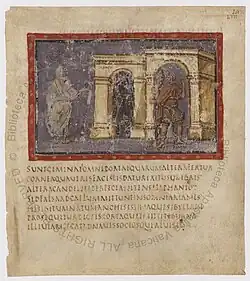 SUNTGEMINAESOMNIPORTAEQUARUMALTERAFERTUR
CORNEAQUAUERISFACILISDATUREXITUSUMBRIS
ALTERACANDENTIPERFECTANITENSELEPHANTO
SEDFALSAADCAELUMMITTUNTINSOMNIAMANES
NATUMANCHISESUNAQUESIBYLLAM
PROSEQUITURDICTISPORTAQUEEMITTITEBURNA
ILLEUIAMSECATADNAUISSOCIOSQUEREUISIT
© Biblioteca
Vaticana ALL